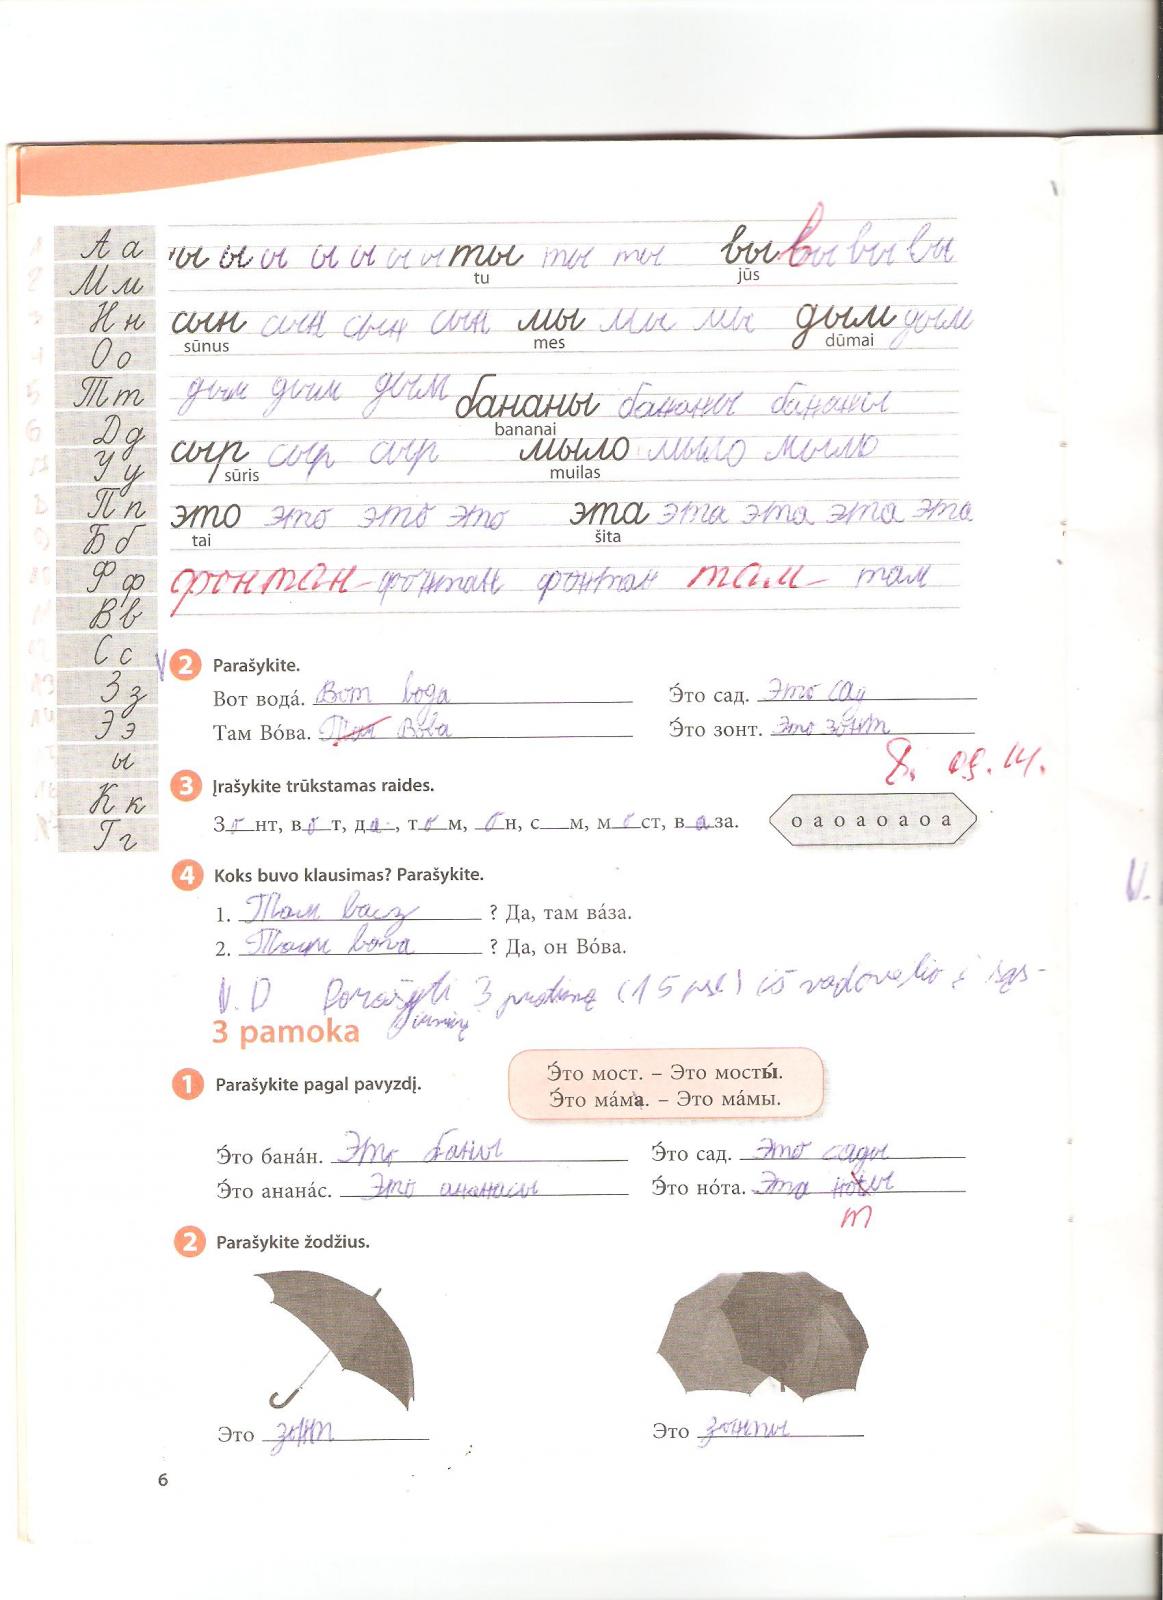 А а
М м
Н н
О о
Т т
Д д
У у
П п
Б б
Ф ф
В в
С с
З з
Э э
ы
К к
Г г
ы ы ы ы ы ы ы ты ты ты вы вы вы вы
tu jūs
сын сын сын сын мы мы мы дым дым
sūnus mes dūmai
дым дым дым бананы бананы бананы
bananai
сыр сыр сыр мыло мыло мыло
sūris muilas
это это это это эта эта эта эта эта
tai šita
фонтан – фонтан фонтан там – там
2 Parašykite.
Вот вода́. Вот вода Э́то сад. Это сад
Там Во́ва. Вова Э́то зонт. Это зонт
8. 09. 14.
3 Įrašykite trūkstamas raides.
Зонт, вот, да, том, он, с__м, мост, ваза. о а о а о а о а
4 Koks buvo klausimas? Parašykite.
1. Там ? Да, там ва́за.
2. ? Да, он Во́ва.
N.D Parašyti 3 (15 psl) iš vadovėlio į sąs-
3 pamoka
1 Parašykite pagal pavyzdį.
Э́то мост. – Это мосты́.
Э́то ма́ма. – Это ма́мы.
Э́то бана́н. Это баны Э́то сад. Это сады
Э́то анана́с. Это ананасы Э́то но́та. Эта
т
2 Parašykite žodžius.
Это зонт Это зонты
6